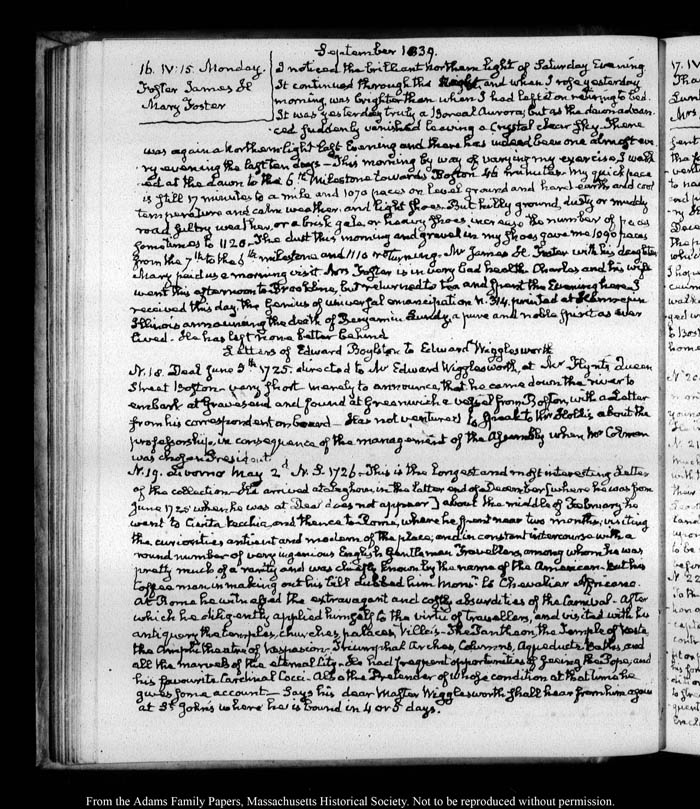 September 1839.
16. IV:15. Monday.
Foster James H
Mary Foster
I noticed the brilliant northern light of Saturday Evening
It continued through the night, and when I rose yesterday
morning, was brighter than when I had left it on retiring to bed.
It was yesterday truly a Boreal Aurora; but as the dawn advan-
ced suddenly vanished leaving a crystal clear sky. There
was again a Northern light last Evening and there has indeed been one almost eve-
ry evening the last ten days — This morning by way of varying my exercise, I walk-
ed at the dawn to the 6th Milestone towards Boston 46 minutes. My quick pace
is still 17 minutes to a mile and 1070 paces on level ground and hard earth and cool
temperature and calm weather, and light shoes. But hilly ground, dusty or muddy
road, sultry weather, or a brisk gale, or heavy shoes increase the number of paces
sometimes to 1120. The dust this morning and gravel in my shoes gave me 1090 paces
from the 7th to the 6th milestone and 1110 returning. Mr James H. Foster with his daughter
Mary paid us a morning visit. Mrs Foster is in very bad health. Charles and his wife
went this afternoon to Brookline, but returned to tea and spent the Evening here. I
received this day the Genius of universal emancipation N. 314, printed at Hennepin
Illinois announcing the death of Benjamin Lundy, a pure and noble spirit as ever
lived. He has left none better behind
Letters of Edward Boylston to Edward Wigglesworth
N. 18. Deal June 5th 1725. directed to Mr Edward Wigglesworth, at Mr Flynts Queen
Street Boston — very short merely to announce, that he came down the river to
embark at Gravesend and found at Greenwich a vessel from Boston, with a Letter
from his correspondent on board — Has not ventured to speak to Mr Hollis about the
professorship, in consequence of the management of the Assembly when Mr Colman
was chosen President.
N. 19. Livorno May 2d N.S. 1726. This is the longest and most interesting Letter
of the collection. He arrived at Leghorn in the latter end of December [where he was from
June 1725 when he was at Deal does not appear] about the middle of February he
went to Civita Vecchia and thence to Rome, where he spent near two months, visiting
the curiosities antient and modern of the place; and in constant intercourse with a
round number of very ingenious English Gentlemen Travellers, among whom he was
pretty much of a rarity and was chiefly known by the name of the American. But his
Coffee man in making out his bill dubbed him Monsr le Chevalier Africano.
At Rome he witnessed the extravagant and costly absurdities of the Carnival. After
which he diligently applied himself to the virtù of travellers, and visited with his
antiquary the temples, churches, palaces, Villa's — The Pantheon, the Temple of Vesta,
the Amphitheatre of Vespasian, Triumphal Arches, Columns, Aqueducts, Baths and
all the marvels of the eternal City. He had frequent opportunities of seeing the Pope, and
his favourite Cardinal Cocci. Also the Pretender of whose condition at that time he
gives some account — Says his dear Master Wigglesworth shall hear from him again
at St John's where he is bound in 4 or 5 days.
From the Adams Family Papers, Massachusetts Historical Society. Not to be reproduced without permission.